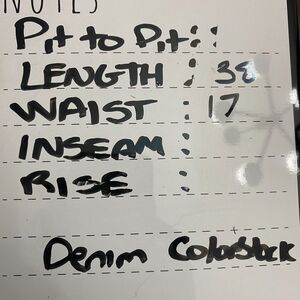 NOTES
Pit to Pit::
LENGTH : 38
WAIST : 17
INSEAM:
RISE :
Denim Colorblock